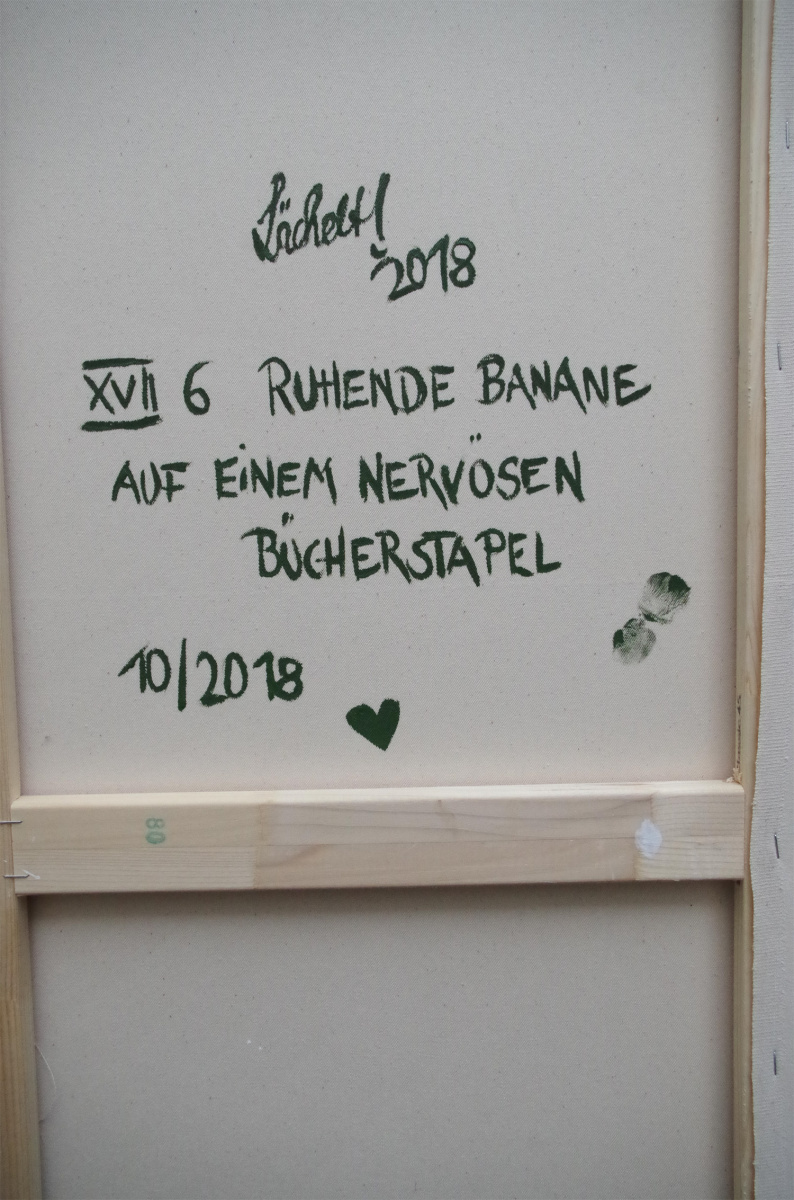 Lächelt!
2018
XVII 6 RUHENDE BANANE
AUF EINEM NERVÖSEN
BÜCHERSTAPEL
10/2018
80